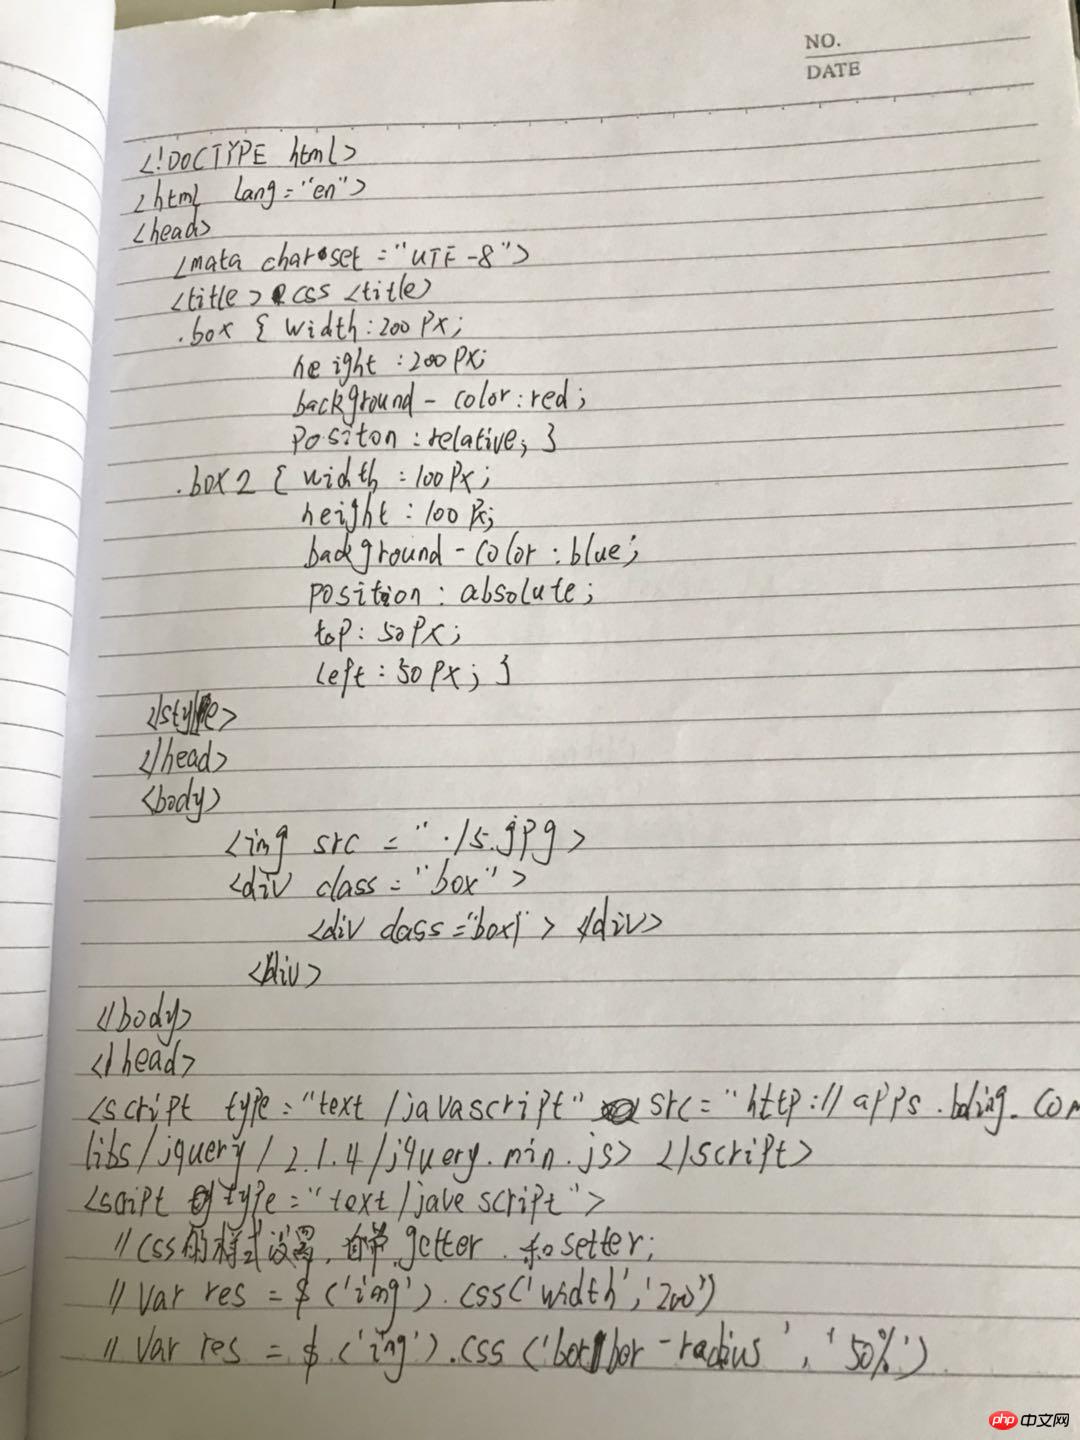 NO.
DATE
<!DOCTYPE html>
<html lang="en">
<head>
<mata charset="UTF-8">
<title>css<title>
.box { width:200px;
height:200px;
background-color:red;
positon:relative; }
.box2 { width:100px;
height:100px;
background-color:blue;
position:absolute;
top:50px;
left:50px; }
</style>
</head>
<body>
<img src="./5.gpg>
<div class="box">
<div class="box1> </div>
</div>
</body>
</head>
<script type="text/javascript" src="http://apps.bding.com
libs/jquery/2.1.4/jquery.min.js> </script>
<script type="text/jave script">
//css的样式设置, getter 和 setter;
//var res = $('img').css('width','200')
//var res = $('img').css('borbor-radius','50%')
php 中文网